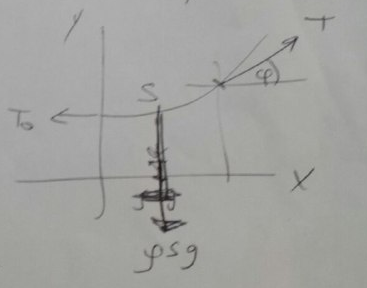 y
T
φ
S
T₀
x
ρsg